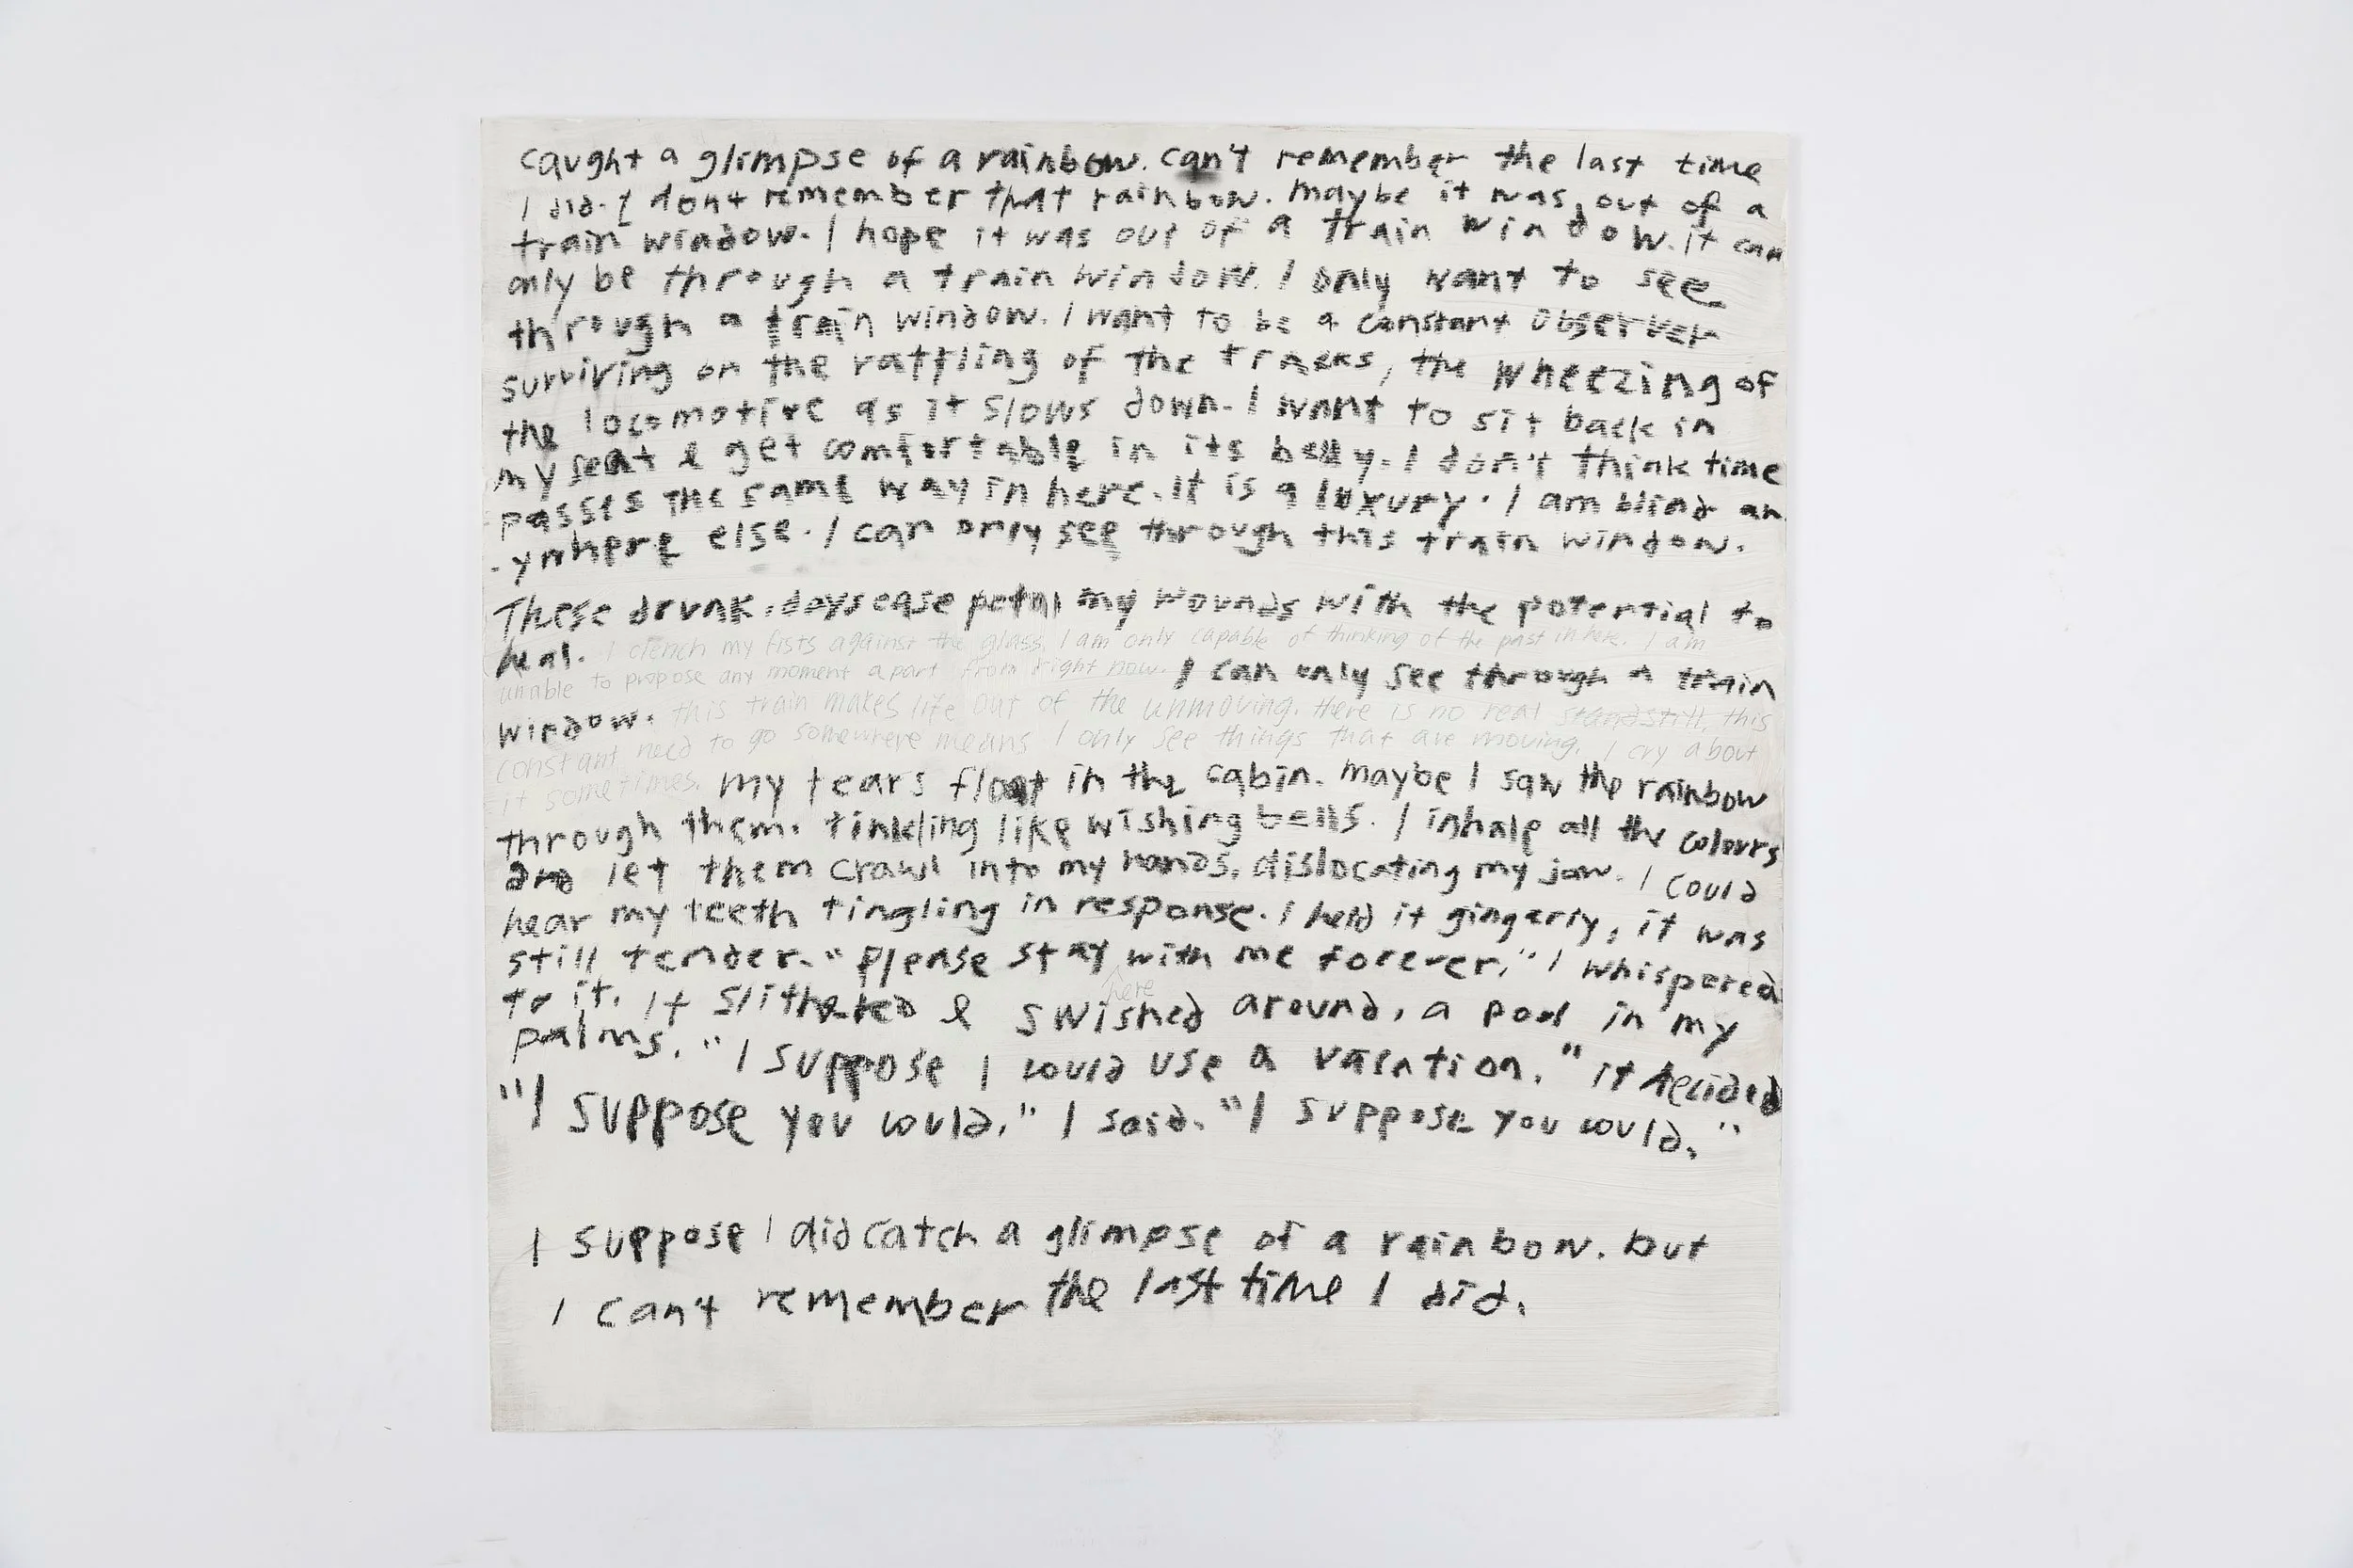 caught a glimpse of a rainbow. can't remember the last time
I did. I don't remember that rainbow. maybe it was out of a
train window. I hope it was out of a train window. it can
only be through a train window. I only want to see
through a train window. I want to be a constant observer
surviving on the rattling of the tracks, the wheezing of
the locomotive as it slows down. I want to sit back in
my seat & get comfortable in its belly. I don't think time
passes the same way in here. It is a luxury. I am blind an
-ywhere else. I can only see through this train window.
These drunk, days ease petal my wounds with the potential to
heal. I clench my fists against the glass. I am only capable of thinking of the past in here. I am
unable to propose any moment apart from right now. I can only see through a train
window. this train makes life out of the unmoving. there is no real standstill, this
constant need to go somewhere means I only see things that are moving. I cry about
it sometimes. my tears float in the cabin. maybe I saw the rainbow
through them. tinkling like wishing bells. I inhale all the colours
and let them crawl into my hands, dislocating my jaw. I could
hear my teeth tingling in response. I held it gingerly, it was
still tender. "Please stay with me forever." I whispered
here
to it. It slithered & swished around, a pool in my
palms. "I suppose I could use a vacation." it decided
"I suppose you could." I said. "I suppose you could."
I suppose I did catch a glimpse of a rainbow. but
I can't remember the last time I did.